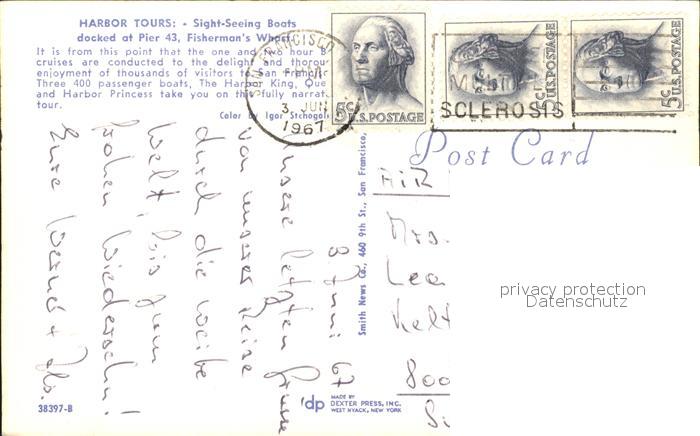 HARBOR TOURS: • Sight-Seeing Boats
docked at Pier 43, Fisherman's Wharf.
It is from this point that the one and two hour B
cruises are conducted to the delight and thorou
enjoyment of thousands of visitors to San Francisc
Three 400 passenger boats, The Harbor King, Que
and Harbor Princess take you on this fully narrat
tour.
Color by Igor Stchogol
SAN FRANCISCO
PM
3. JUN
1967
5¢
U.S.POSTAGE
5¢
U.S.POSTAGE
5¢
U.S.POSTAGE
SCLEROSIS
Post Card
8 Juni 67
Unsere letzten Grüsse
von unserer Reise
durch die weite
Welt, bis zum
frohen Wiedersehn!
Eure Werner +
Smith News Co., 460 9th St., San Francisco,
AIR
Mrs.
Lea
Kelt
800
privacy protection
Datenschutz
38397-B
dp
MADE BY
DEXTER PRESS, INC.
WEST NYACK, NEW YORK